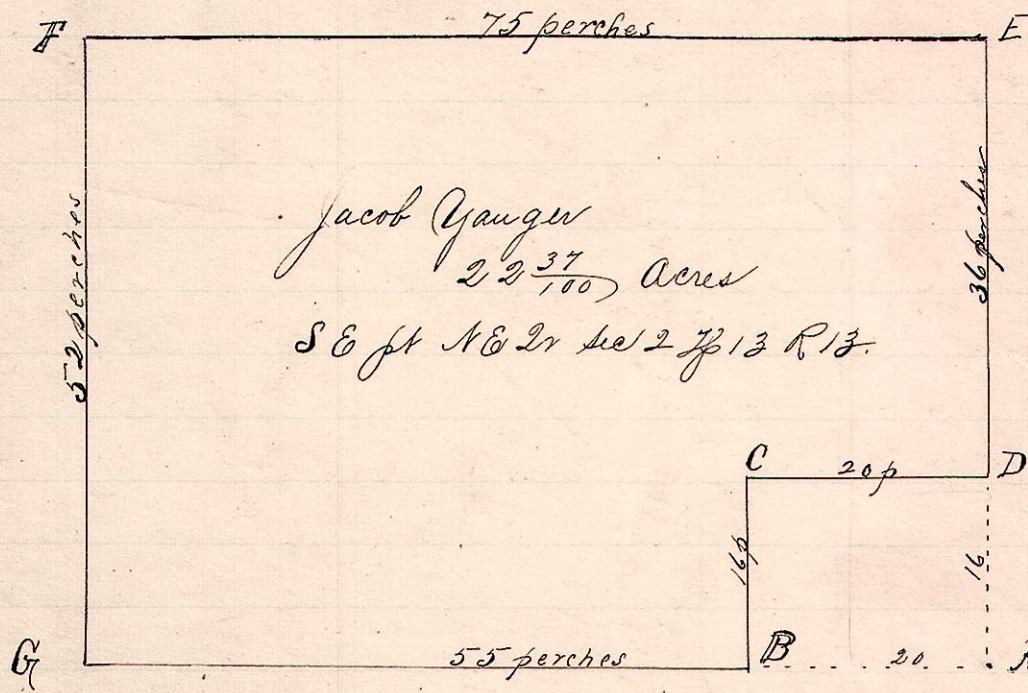 F 75 perches E
52 perches
Jacob Yauger
22 37/100 Acres
36 perches
S E pt N E Qr Sec 2 Tp 13 R 13.
C 20p D
16p
16
G 55 perches B 20 A